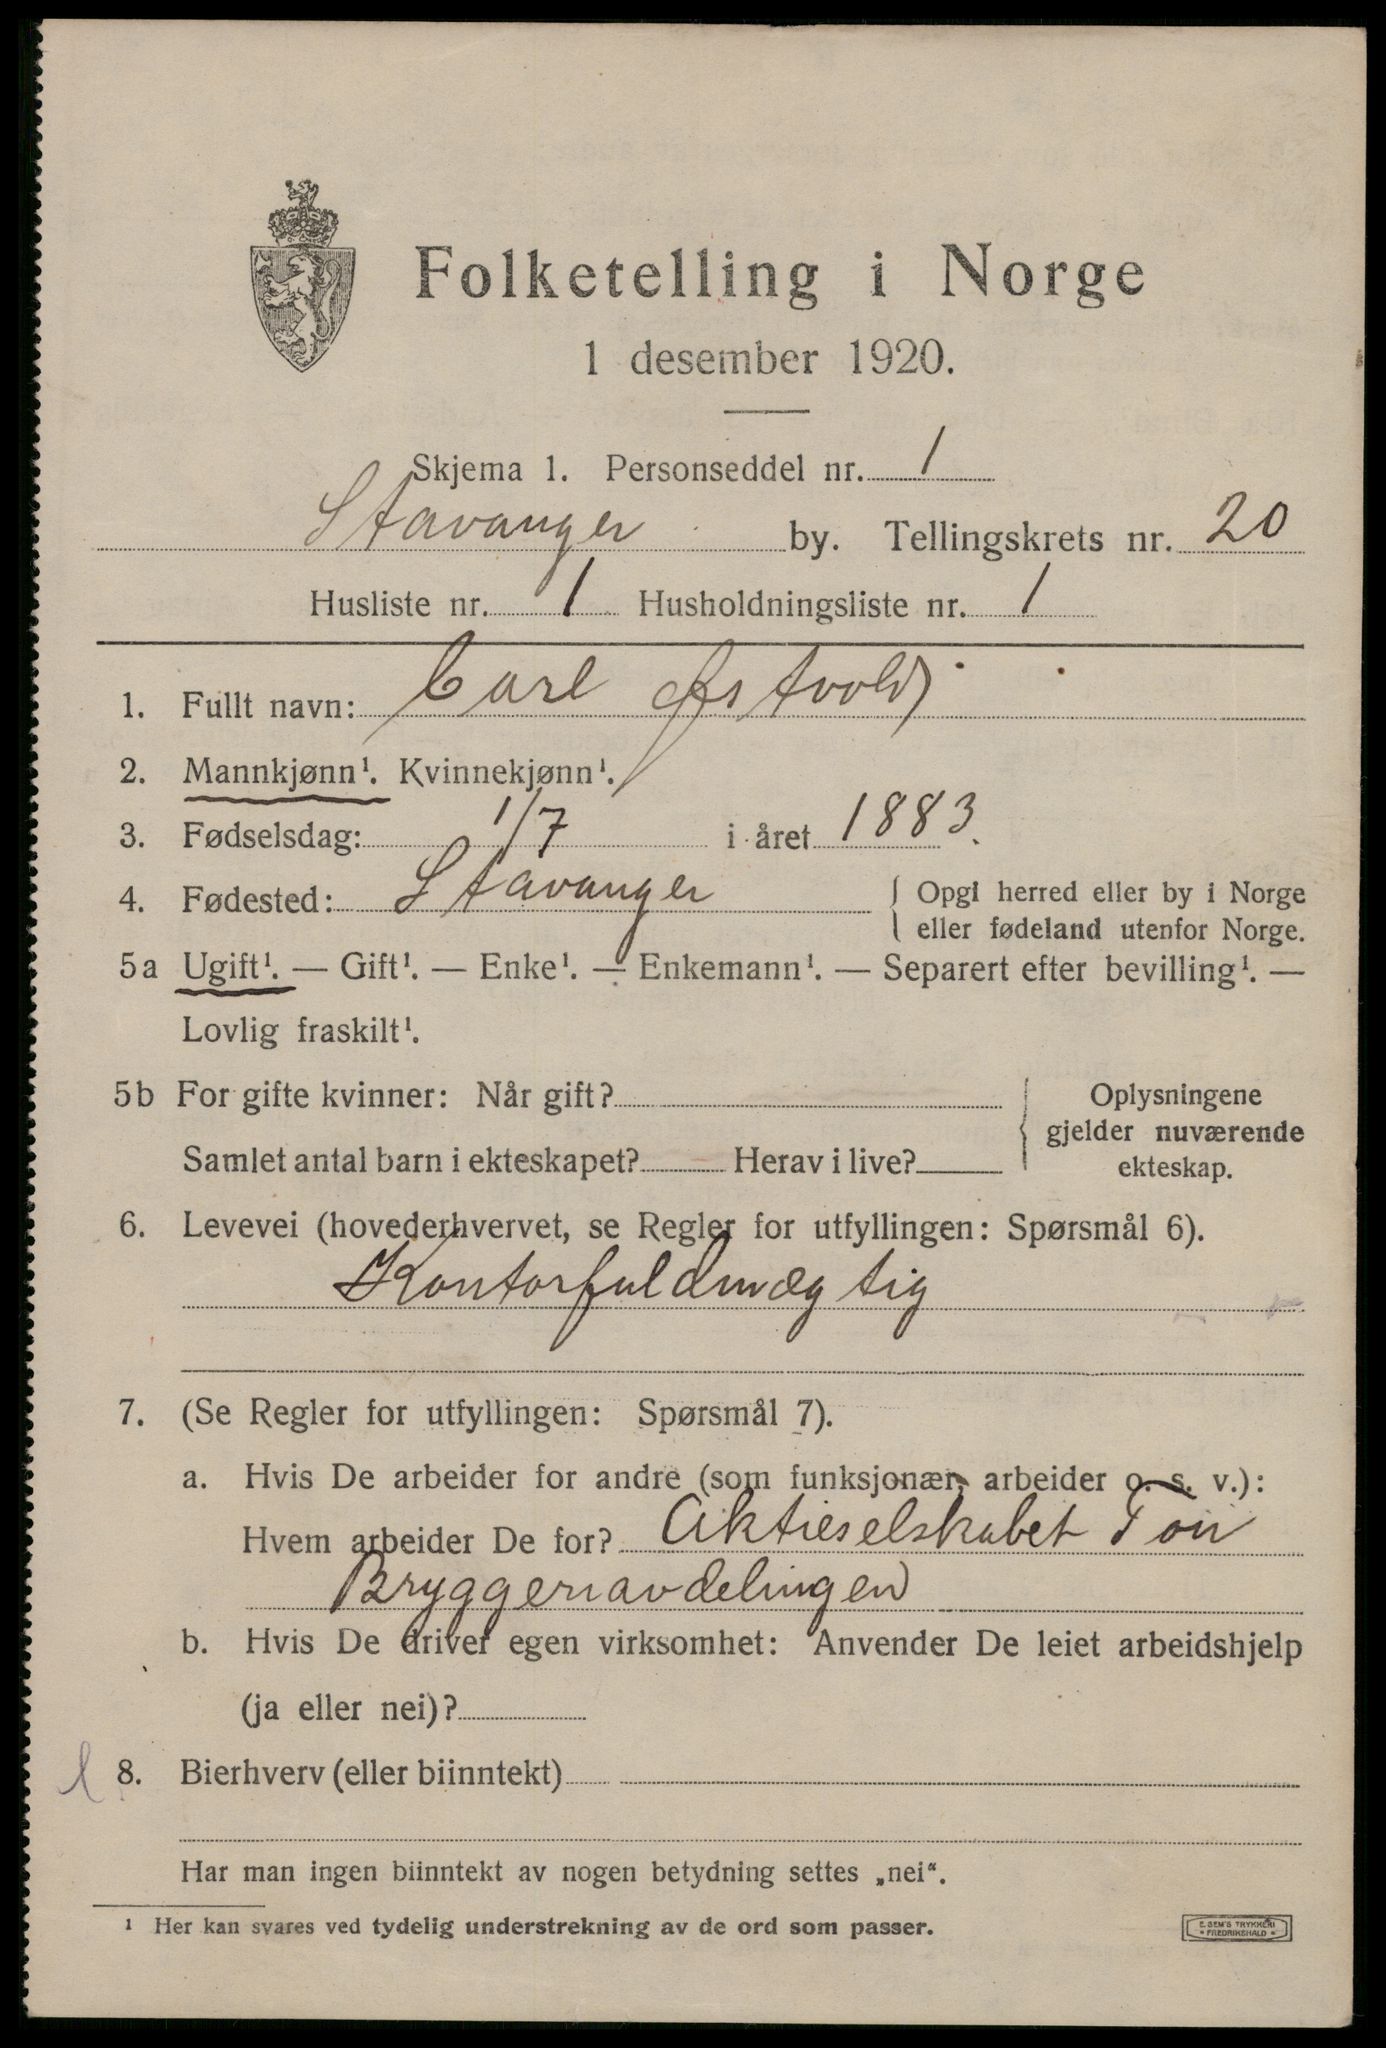 Folketelling i Norge
1 desember 1920.
Skjema 1. Personseddel nr. 1
Stavanger by. Tellingskrets nr. 20
Husliste nr. 1 Husholdningsliste nr. 1
1. Fullt navn: Carl Østvold
2. Mannkjønn¹. Kvinnekjønn¹.
3. Fødselsdag: 1/7 i året 1883.
4. Fødested: Stavanger { Opgi herred eller by i Norge
eller fødeland utenfor Norge.
5a Ugift¹. — Gift¹. — Enke¹. — Enkemann¹. — Separert efter bevilling¹. —
Lovlig fraskilt¹.
5b For gifte kvinner: Når gift? { Oplysningene
gjelder nuværende
Samlet antal barn i ekteskapet? Herav i live? ekteskap.
6. Levevei (hovederhvervet, se Regler for utfyllingen: Spørsmål 6).
Kontorfuldmægtig
7. (Se Regler for utfyllingen: Spørsmål 7).
a. Hvis De arbeider for andre (som funksjonær, arbeider o. s. v.):
Hvem arbeider De for? Aktieselskabet Tou
Bryggeriavdelingen
b. Hvis De driver egen virksomhet: Anvender De leiet arbeidshjelp
(ja eller nei)?
8. Bierhverv (eller biinntekt)
Har man ingen biinntekt av nogen betydning settes „nei“.
¹ Her kan svares ved tydelig understrekning av de ord som passer.
E. SEM'S TRYKKERI
* FREDRIKSHALD *